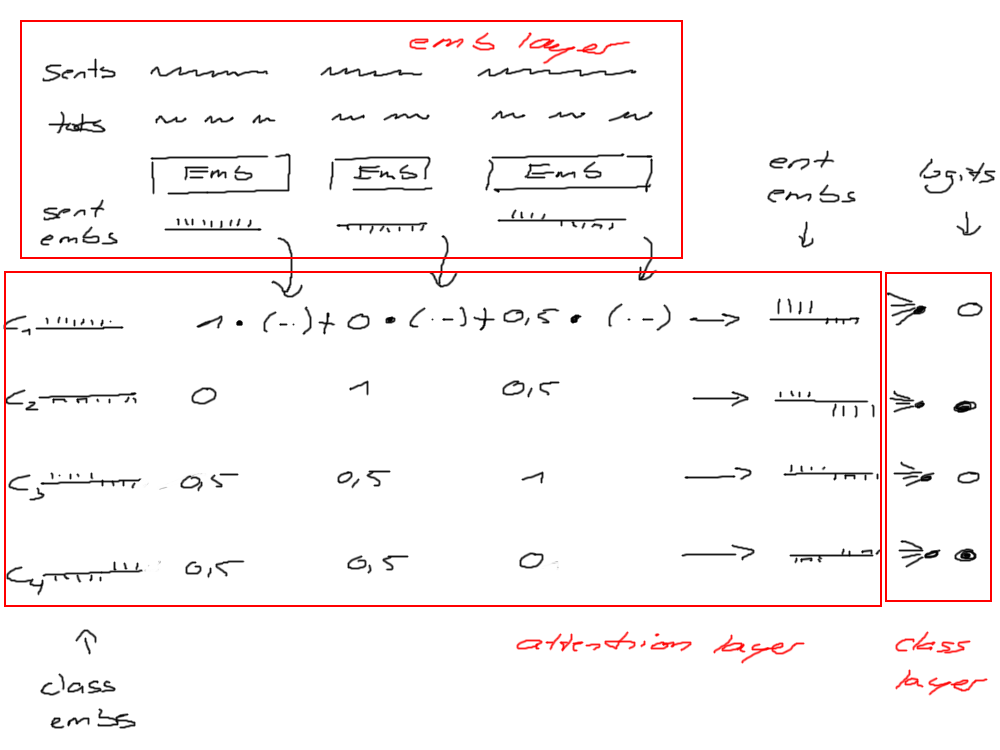 emb layer
sents
toks
Emb Emb Emb
sent
embs
ent
embs
logits
C1 1 · (··) + 0 · (··) + 0,5 · (··)
C2 0 1 0,5
C3 0,5 0,5 1
C4 0,5 0,5 0
attention layer
class
layer
class
embs